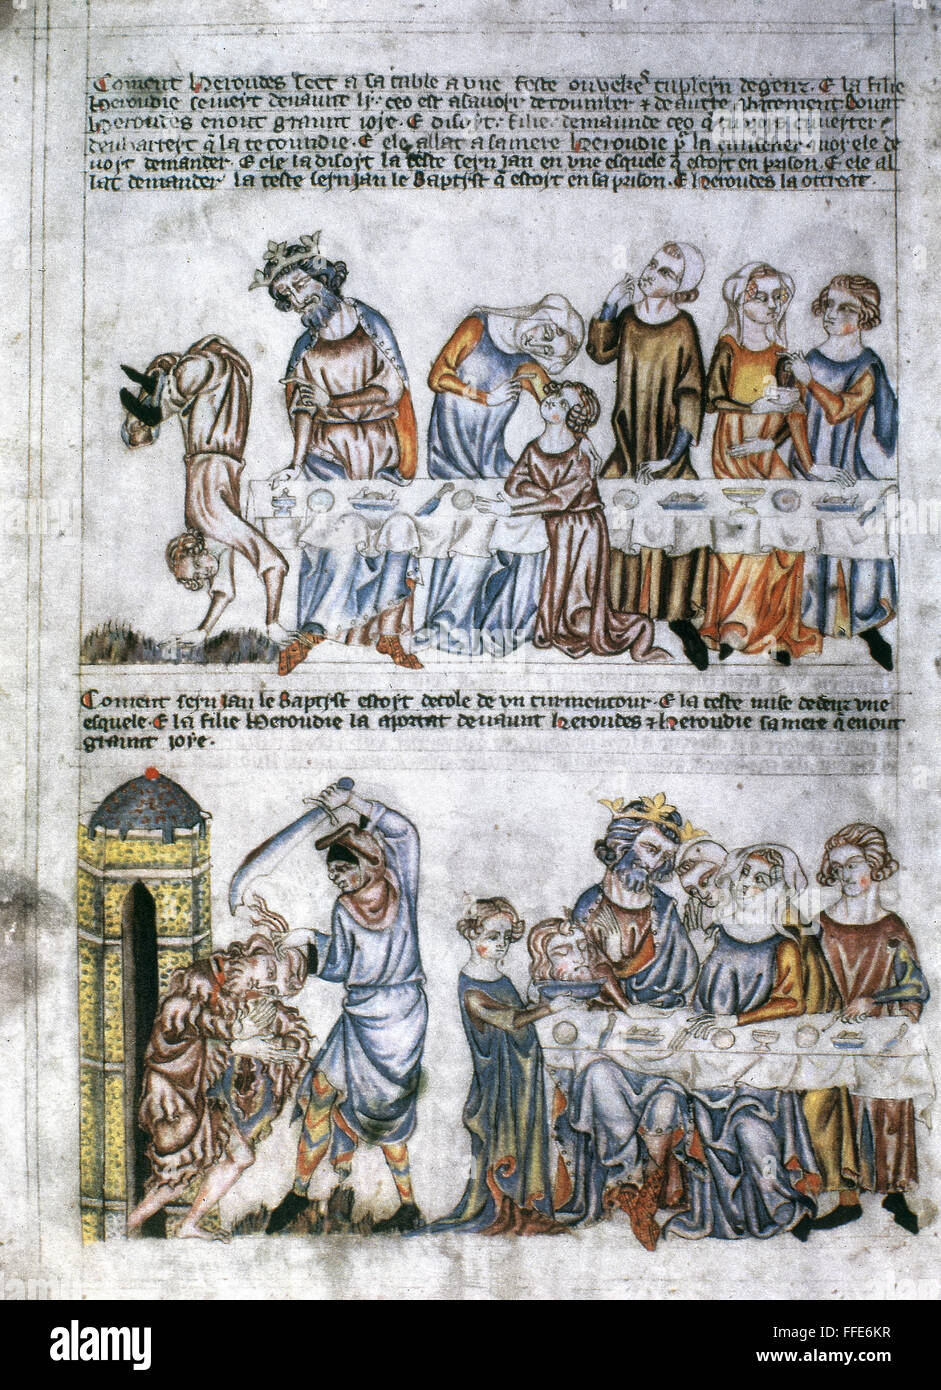 Coment Heroudes seet a sa table a une feste ou
E la filie
Heroudie devaunt ly ceo est asavoyr de toumber & de autre
Heroudes en out graunt ioye · E disoyt · filie demaunde ceo q
E ele allat a sa mere Heroudie
voyt demander · E ele la disoyt la teste seyn Jan en une esquele q estoyt en prison · E ele al
lat demander la teste seyn Jau le Baptist q estoyt en sa prison · E Heroudes la ottreie ·
Coment seyn Jau le Baptist estoyt decole de un turmentour · E la teste mise dedenz une
esquele · E la filie Heroudie la aportat devaunt Heroudes & Heroudie sa mere q en out
graunt ioye ·
alamy
Image ID: FFE6KR
www.alamy.com